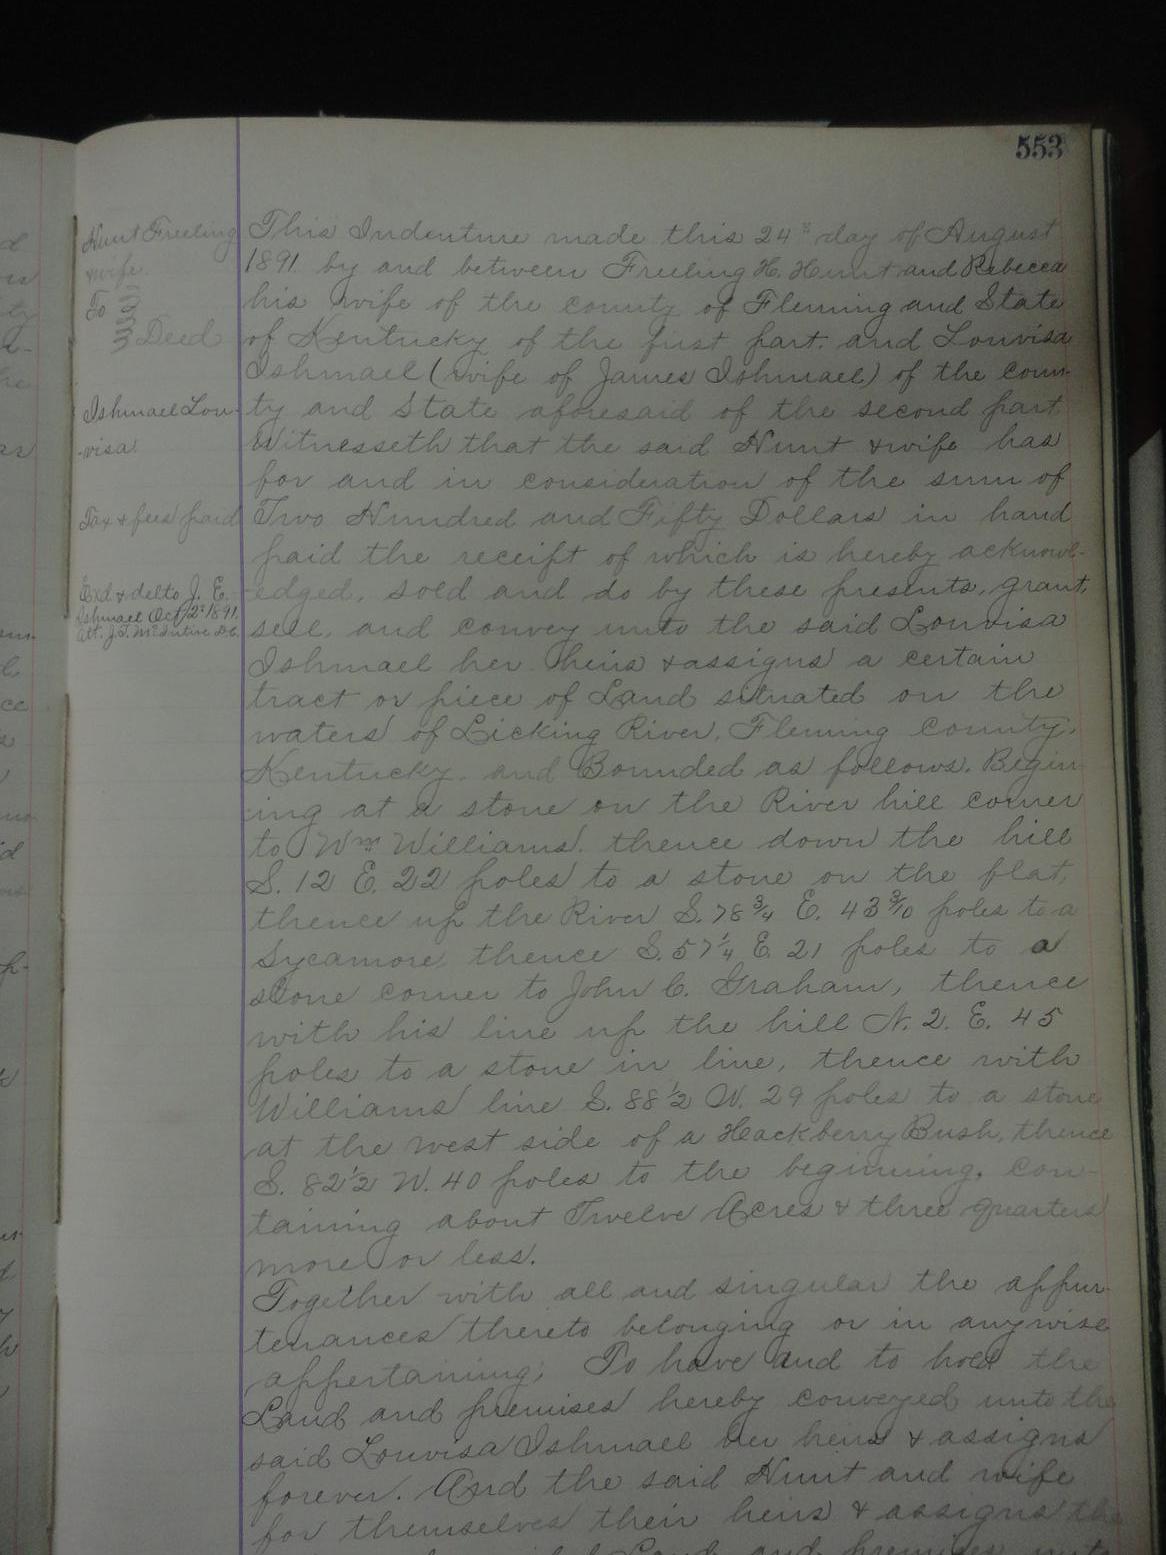 553
Hunt Freeling
& wife
To
Deed
Ishmael Lou-
-visa
Tax & fees paid
Exd & del to J. E.
Ishmael Oct 12" 1891.
Att. J.S. McIntire D.C.
This Indenture made this 24" day of August
1891. by and between Freeling H. Hunt and Rebecca
his wife of the county of Fleming and State
of Kentucky of the first part. and Louvisa
Ishmael (wife of James Ishmael) of the coun-
ty and State aforesaid of the second part
Witnesseth that the said Hunt & wife has
for and in consideration of the sum of
Two Hundred and Fifty Dollars in hand
paid the receipt of which is hereby acknowl-
edged, sold and do by these presents, grant,
sell, and convey unto the said Louvisa
Ishmael her heirs & assigns a certain
tract or piece of Land situated on the
waters of Licking River, Fleming County,
Kentucky. and Bounded as follows. Begin-
ing at a stone on the River hill corner
to Wm Williams. thence down the hill
S. 12 E. 22 poles to a stone on the flat,
thence up the River S. 78 3/4 E. 43 3/10 poles to a
Sycamore, thence S. 57 1/4 E. 21 poles to a
stone corner to John C. Graham, thence
with his line up the hill N. 2. E. 45
poles to a stone in line, thence with
Williams line S. 88 1/2 W. 29 poles to a stone
at the west side of a Hackberry Bush, thence
S. 82 1/2 W. 40 poles to the beginning. con-
taining about Twelve Acres & three quarters
more or less.
Together with all and singular the appur-
tenances thereto belonging or in anywise
appertaining; To have and to hold the
Land and premises hereby conveyed unto the
said Louvisa Ishmael her heirs & assigns
forever. And the said Hunt and wife
for themselves their heirs & assigns the
Land and premises unto